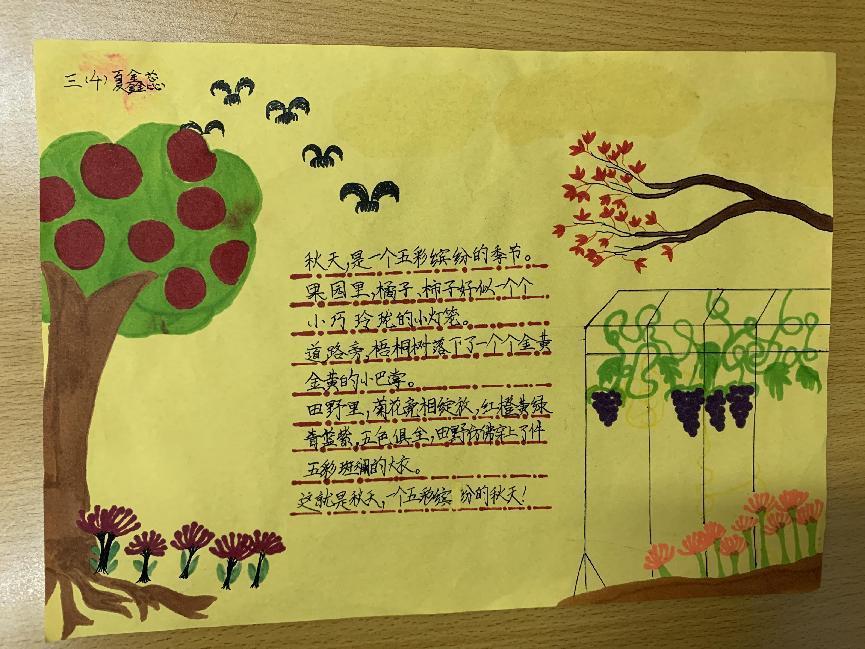 三(4)夏鑫蕊
秋天,是一个五彩缤纷的季节。
果园里,橘子、柿子好似一个个
小巧玲珑的小灯笼。
道路旁,梧桐树落下了一个个金黄
金黄的小巴掌。
田野里,菊花竞相绽放,红橙黄绿
青蓝紫,五色俱全,田野仿佛穿上了件
五彩斑斓的大衣。
这就是秋天,一个五彩缤纷的秋天!